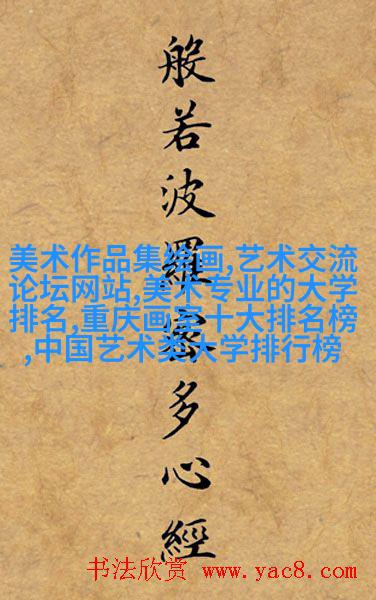 般若波羅蜜多心經
美术作品集绘画,艺术交流
论坛网站,美术专业的大学
排名,重庆画室十大排名榜
,中国艺术类大学排行榜
书法欣赏 www.yac8.com